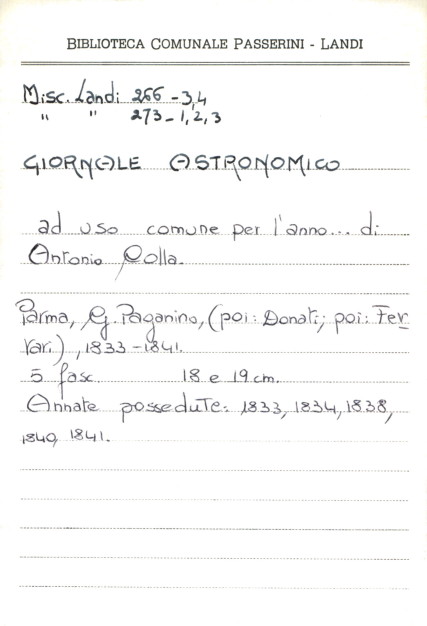 BIBLIOTECA COMUNALE PASSERINI - LANDI
Misc. Landi 266 - 3,4
" " 273 - 1, 2, 3
GIORNALE ASTRONOMICO
ad uso comune per l'anno... di
Antonio Colla.
Parma, G. Paganino, (poi: Donati; poi: Fer
rari), 1833 - 1841.
5 fasc. 18 e 19 cm.
Annate possedute: 1833, 1834, 1838,
1840, 1841.